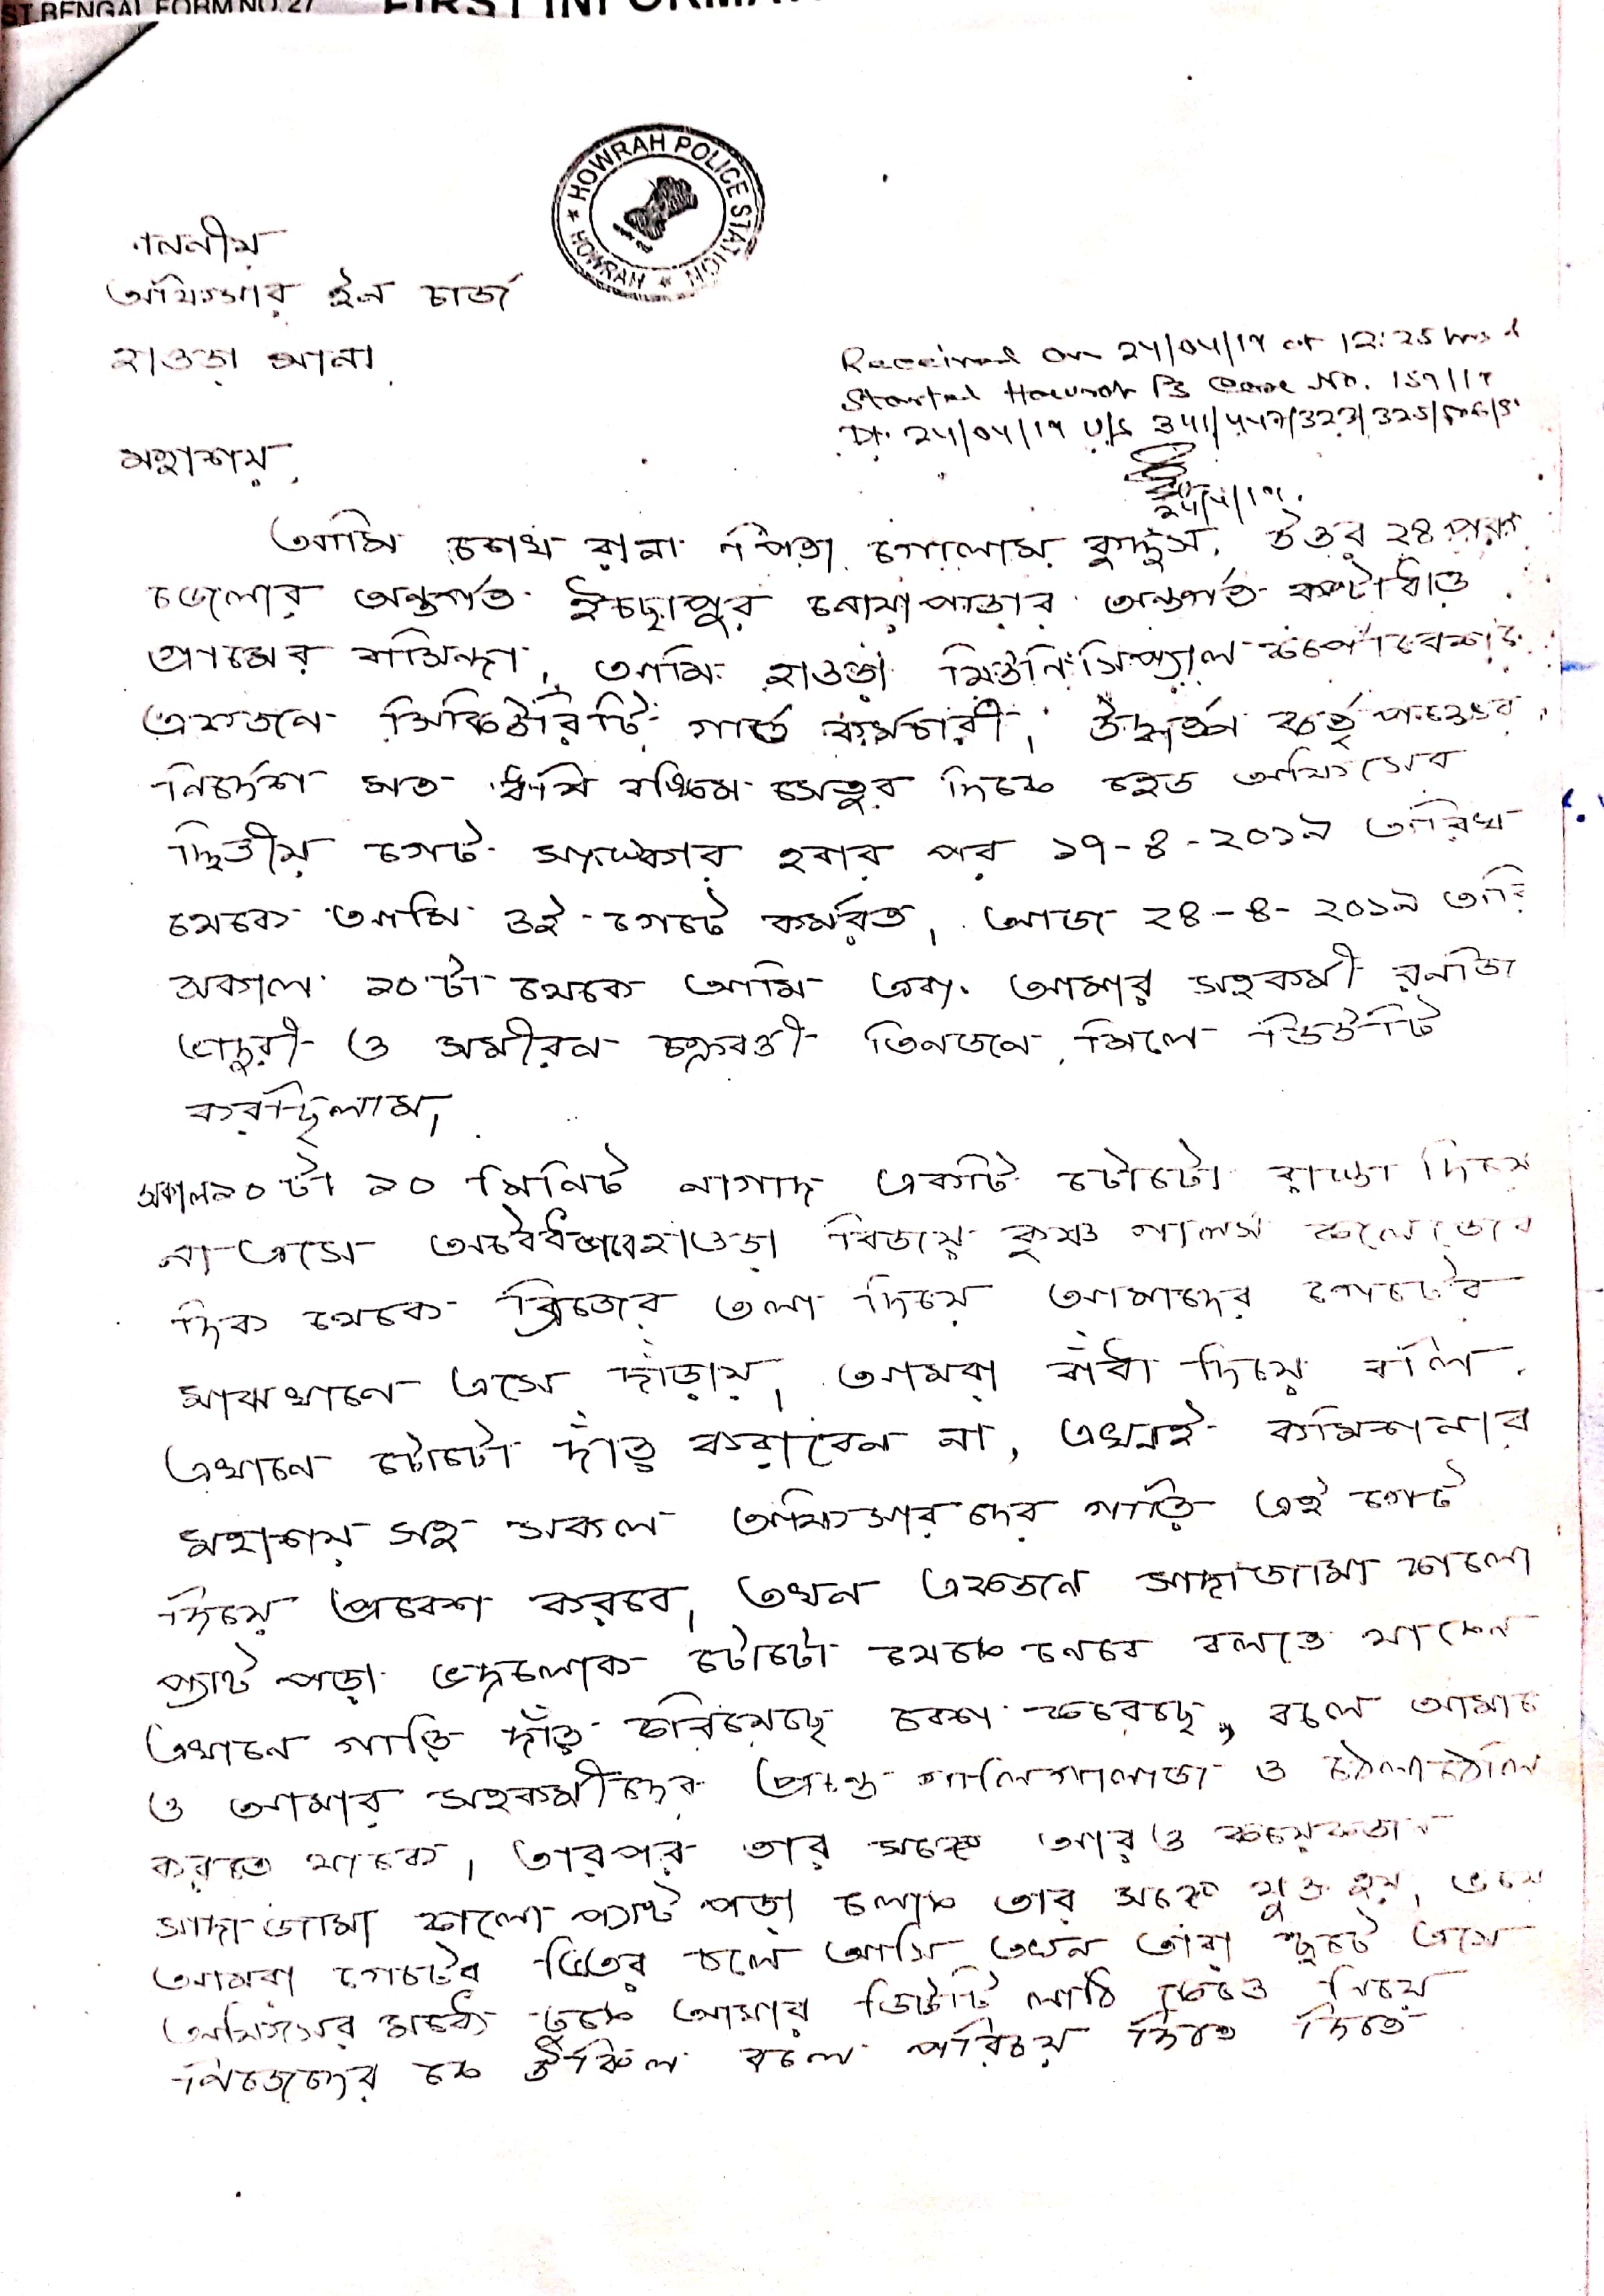 ST BENGAL FORM NO. 27 FIRST INFORMA
HOWRAH POLICE STATION
HOWRAH
মাননীয়
অফিসার ইন চার্জ
হাওড়া থানা
Received on 24/04/19 at 12:25 hrs &
Started Howrah PS Case No. 159/19
Dt. 24/04/19 U/S 341/447/323/325/506/
24/4/19.
মহাশয়,
আমি শেখ রানা পিতা গোলাম কুদ্দুস, উত্তর ২৪ পরগ
জেলার অন্তর্গত ইছাপুর নোয়াপাড়ার অন্তর্গত
গ্রামের বাসিন্দা, আমি হাওড়া মিউনিসিপ্যাল কর্পোরেশনে
একজন সিকিউরিটি গার্ড কর্মচারী, উর্দ্ধতন কর্তৃপক্ষের
নির্দেশ মত ঋষি বঙ্কিম সেতুর দিকে হেড অফিসের
দ্বিতীয় গেট সংস্কার হবার পর ১৭-৪-২০১৯ তারিখ
থেকে আমি ওই গেটে কর্মরত, আজ ২৪-৪-২০১৯ তারি
সকাল ১০টা থেকে আমি এবং আমার সহকর্মী রনজি
ভাদুরী ও সমীরন চক্রবর্তী তিনজনে মিলে ডিউটি
করছিলাম,
সকাল ১০টা ১০ মিনিট নাগাদ একটি টোটো রাস্তা দিয়ে
না এসে অবৈধভাবে হাওড়া বিজয় কৃষ্ণ গালর্স কলেজের
দিক থেকে ব্রিজের তলা দিয়ে আমাদের গেটের
মাঝখানে এসে দাঁড়ায়, আমরা বাঁধা দিয়ে বলি
এখানে টোটো দাঁড় করাবেন না, এখনই কমিশনার
মহাশয় সহ সকল অফিসারদের গাড়ি এই গেট
দিয়ে প্রবেশ করবে, তখন একজন সাদা জামা কালো
প্যান্ট পড়া ভদ্রলোক টোটো থেকে নেবে বলতে থাকেন
এখানে গাড়ি দাঁড় করিয়েছে বেশ করেছে, বলে আমাকে
ও আমার সহকর্মীদের প্রচন্ড গালিগালাজ ও ঠেলাঠেলি
করতে থাকে, তারপর তার সঙ্গে আরও কয়েকজন
সাদা জামা কালো প্যান্ট পড়া লোক তার সঙ্গে যুক্ত হয়, ভয়ে
আমরা গেটের ভিতর চলে আসি তখন তারা ছুটে এসে
অফিসের মধ্যে ঢুকে আমার ডিউটি লাঠি কেড়ে নিয়ে
নিজেদের কে উকিল বলে পরিচয় দিতে দিতে